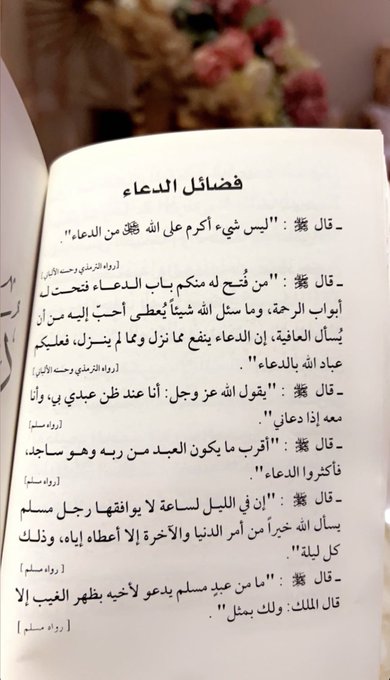 فضائل الدعاء
ـ قال ﷺ : "ليس شيء أكرم على الله ﷻ من الدعاء".
[رواه الترمذي وحسنه الألباني]
ـ قال ﷺ : "من فُتح له منكم باب الدعاء فتحت له
أبواب الرحمة، وما سئل الله شيئاً يُعطى أحبّ إليه من أن
يُسأل العافية، إن الدعاء ينفع مما نزل ومما لم ينزل، فعليكم
عباد الله بالدعاء" .
[رواه الترمذي وحسنه الألباني]
ـ قال ﷺ : "يقول الله عز وجل: أنا عند ظن عبدي بي، وأنا
معه إذا دعاني".
[رواه مسلم]
ـ قال ﷺ : "أقرب ما يكون العبد من ربه وهو ساجد،
فأكثروا الدعاء".
[رواه مسلم]
ـ قال ﷺ : "إن في الليل لساعة لا يوافقها رجل مسلم
يسأل الله خيراً من أمر الدنيا والآخرة إلا أعطاه إياه، وذلك
كل ليلة".
[رواه مسلم]
ـ قال ﷺ : "ما من عبدٍ مسلم يدعو لأخيه بظهر الغيب إلا
قال الملك: ولك بمثل" .
[رواه مسلم]